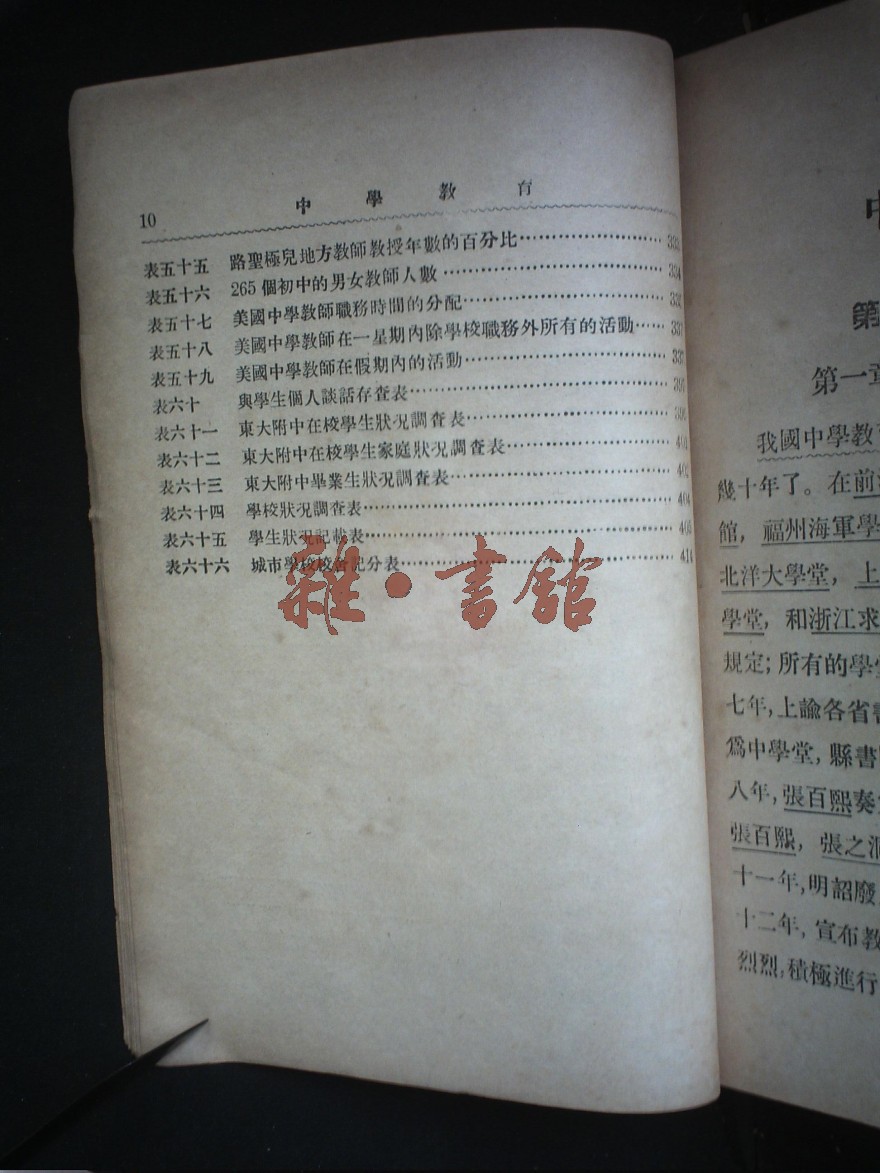 10 中學教育
表五十五 路聖極兒地方教師教授年數的百分比……333
表五十六 265個初中的男女教師人數……334
表五十七 美國中學教師職務時間的分配……332
表五十八 美國中學教師在一星期內除學校職務外所有的活動……337
表五十九 美國中學教師在假期內的活動……337
表六十 與學生個人談話存查表……397
表六十一 東大附中在校學生狀況調查表……
表六十二 東大附中在校學生家庭狀況調查表……401
表六十三 東大附中畢業生狀況調查表……402
表六十四 學校狀況調查表……404
表六十五 學生狀況記載表……
表六十六 城市學校校舍記分表……
雜·書館
中
第
第一章
我國中學教育
幾十年了。在前
館，福州海軍學
北洋大學堂，上
學堂，和浙江求
規定；所有的學堂
七年，上諭各省書
爲中學堂，縣書
八年，張百熙奏
張百熙，張之洞
十一年，明詔廢
十二年，宣布教
烈烈，積極進行